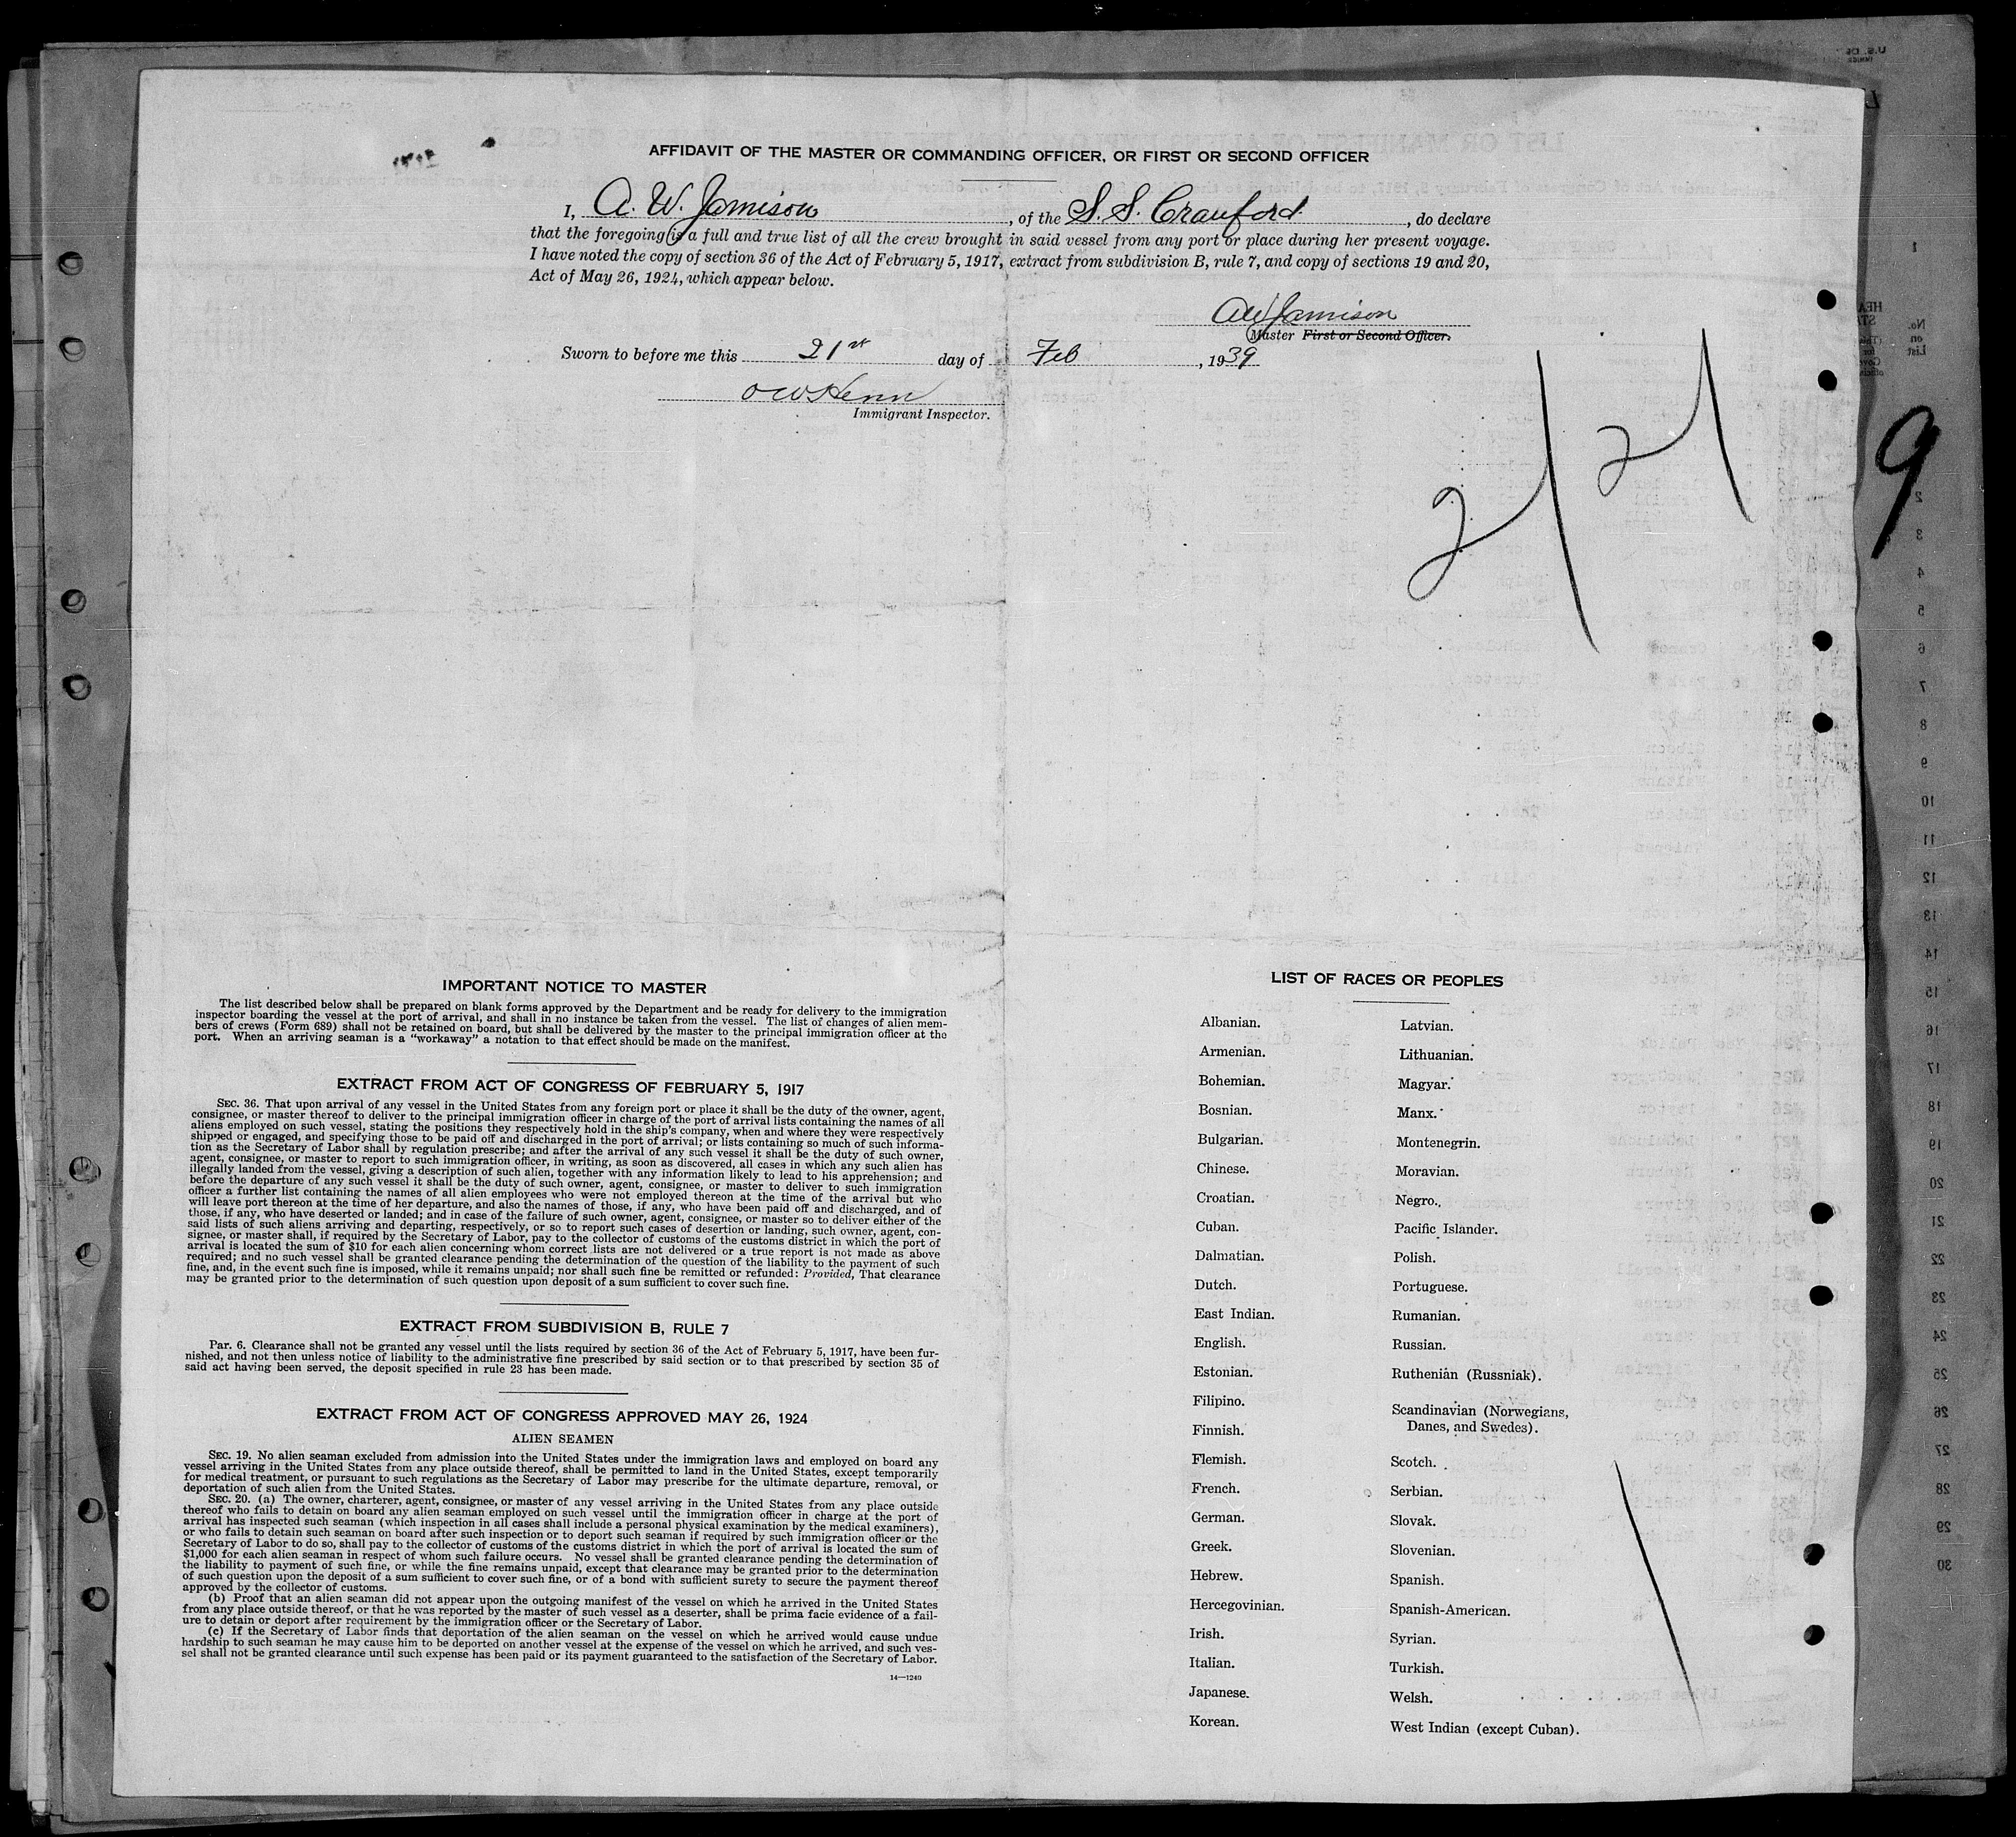 AFFIDAVIT OF THE MASTER OR COMMANDING OFFICER, OR FIRST OR SECOND OFFICER
I, A. W. Jamison, of the S. S. Crauford, do declare
that the foregoing is a full and true list of all the crew brought in said vessel from any port or place during her present voyage.
I have noted the copy of section 36 of the Act of February 5, 1917, extract from subdivision B, rule 7, and copy of sections 19 and 20,
Act of May 26, 1924, which appear below.
AW Jamison
Master First or Second Officer.
Sworn to before me this 21st day of Feb, 1939
Immigrant Inspector.
2/21
9
IMPORTANT NOTICE TO MASTER
The list described below shall be prepared on blank forms approved by the Department and be ready for delivery to the immigration
inspector boarding the vessel at the port of arrival, and shall in no instance be taken from the vessel. The list of changes of alien mem-
bers of crews (Form 689) shall not be retained on board, but shall be delivered by the master to the principal immigration officer at the
port. When an arriving seaman is a "workaway" a notation to that effect should be made on the manifest.
EXTRACT FROM ACT OF CONGRESS OF FEBRUARY 5, 1917
SEC. 36. That upon arrival of any vessel in the United States from any foreign port or place it shall be the duty of the owner, agent,
consignee, or master thereof to deliver to the principal immigration officer in charge of the port of arrival lists containing the names of all
aliens employed on such vessel, stating the positions they respectively hold in the ship's company, when and where they were respectively
shipped or engaged, and specifying those to be paid off and discharged in the port of arrival; or lists containing so much of such informa-
tion as the Secretary of Labor shall by regulation prescribe; and after the arrival of any such vessel it shall be the duty of such owner,
agent, consignee, or master to report to such immigration officer, in writing, as soon as discovered, all cases in which any such alien has
illegally landed from the vessel, giving a description of such alien, together with any information likely to lead to his apprehension; and
before the departure of any such vessel it shall be the duty of such owner, agent, consignee, or master to deliver to such immigration
officer a further list containing the names of all alien employees who were not employed thereon at the time of the arrival but who
will leave port thereon at the time of her departure, and also the names of those, if any, who have been paid off and discharged, and of
those, if any, who have deserted or landed; and in case of the failure of such owner, agent, consignee, or master so to deliver either of the
said lists of such aliens arriving and departing, respectively, or so to report such cases of desertion or landing, such owner, agent, con-
signee, or master shall, if required by the Secretary of Labor, pay to the collector of customs of the customs district in which the port of
arrival is located the sum of $10 for each alien concerning whom correct lists are not delivered or a true report is not made as above
required; and no such vessel shall be granted clearance pending the determination of the question of the liability to the payment of such
fine, and, in the event such fine is imposed, while it remains unpaid; nor shall such fine be remitted or refunded: Provided, That clearance
may be granted prior to the determination of such question upon deposit of a sum sufficient to cover such fine.
EXTRACT FROM SUBDIVISION B, RULE 7
Par. 6. Clearance shall not be granted any vessel until the lists required by section 36 of the Act of February 5, 1917, have been fur-
nished, and not then unless notice of liability to the administrative fine prescribed by said section or to that prescribed by section 35 of
said act having been served, the deposit specified in rule 23 has been made.
EXTRACT FROM ACT OF CONGRESS APPROVED MAY 26, 1924
ALIEN SEAMEN
SEC. 19. No alien seaman excluded from admission into the United States under the immigration laws and employed on board any
vessel arriving in the United States from any place outside thereof, shall be permitted to land in the United States, except temporarily
for medical treatment, or pursuant to such regulations as the Secretary of Labor may prescribe for the ultimate departure, removal, or
deportation of such alien from the United States.
SEC. 20. (a) The owner, charterer, agent, consignee, or master of any vessel arriving in the United States from any place outside
thereof who fails to detain on board any alien seaman employed on such vessel until the immigration officer in charge at the port of
arrival has inspected such seaman (which inspection in all cases shall include a personal physical examination by the medical examiners),
or who fails to detain such seaman on board after such inspection or to deport such seaman if required by such immigration officer or the
Secretary of Labor to do so, shall pay to the collector of customs of the customs district in which the port of arrival is located the sum of
$1,000 for each alien seaman in respect of whom such failure occurs. No vessel shall be granted clearance pending the determination of
the liability to payment of such fine, or while the fine remains unpaid, except that clearance may be granted prior to the determination
of such question upon the deposit of a sum sufficient to cover such fine, or of a bond with sufficient surety to secure the payment thereof
approved by the collector of customs.
(b) Proof that an alien seaman did not appear upon the outgoing manifest of the vessel on which he arrived in the United States
from any place outside thereof, or that he was reported by the master of such vessel as a deserter, shall be prima facie evidence of a fail-
ure to detain or deport after requirement by the immigration officer or the Secretary of Labor.
(c) If the Secretary of Labor finds that deportation of the alien seaman on the vessel on which he arrived would cause undue
hardship to such seaman he may cause him to be deported on another vessel at the expense of the vessel on which he arrived, and such ves-
sel shall not be granted clearance until such expense has been paid or its payment guaranteed to the satisfaction of the Secretary of Labor.
14—1240
LIST OF RACES OR PEOPLES
Albanian.
Armenian.
Bohemian.
Bosnian.
Bulgarian.
Chinese.
Croatian.
Cuban.
Dalmatian.
Dutch.
East Indian.
English.
Estonian.
Filipino.
Finnish.
Flemish.
French.
German.
Greek.
Hebrew.
Hercegovinian.
Irish.
Italian.
Japanese.
Korean.
Latvian.
Lithuanian.
Magyar.
Manx.
Montenegrin.
Moravian.
Negro.
Pacific Islander.
Polish.
Portuguese.
Rumanian.
Russian.
Ruthenian (Russniak).
Scandinavian (Norwegians,
Danes, and Swedes).
Scotch.
Serbian.
Slovak.
Slovenian.
Spanish.
Spanish-American.
Syrian.
Turkish.
Welsh.
West Indian (except Cuban).
No.
on
List
1
2
3
4
5
6
7
8
9
10
11
12
13
14
15
16
17
18
19
20
21
22
23
24
25
26
27
28
29
30